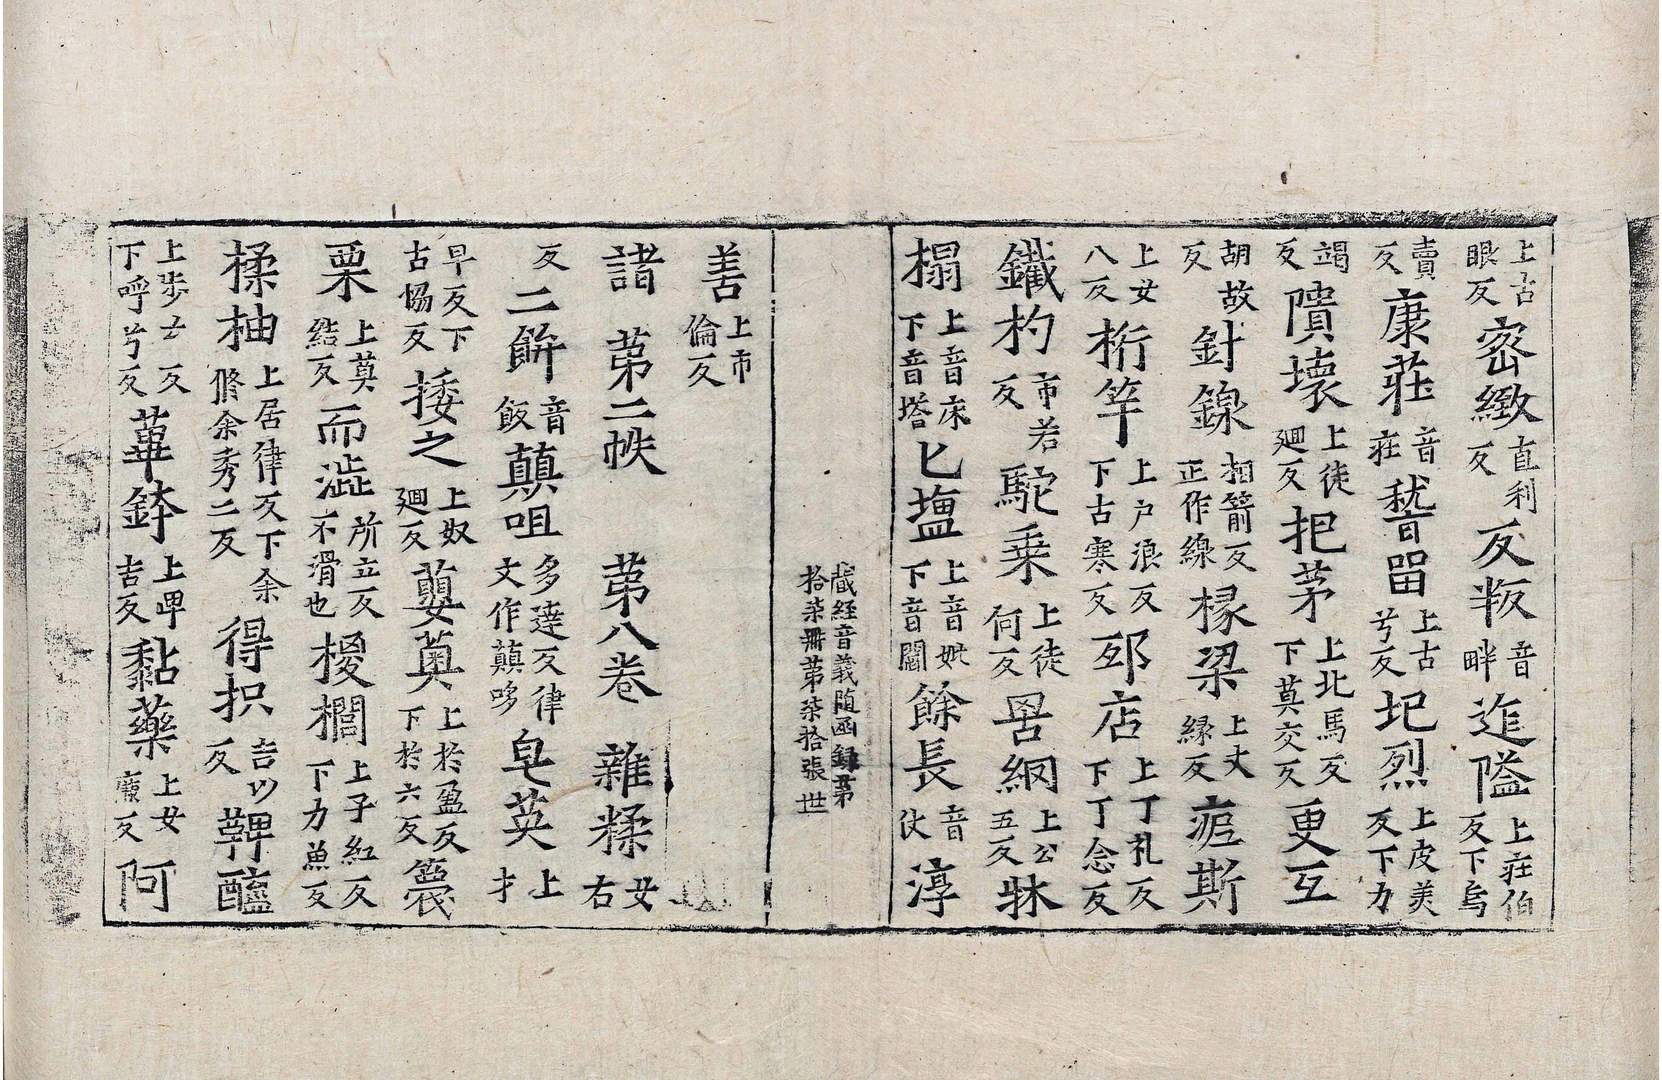 上古眼反密緻直利反反叛音畔迮隘上庄伯反下烏
賣反康莊音庄嵇留上古兮反圯烈上皮美反下力
竭反隤壞上徒迴反把茅上北馬反下莫交反更互
胡故反針鎳相箭反正作線椽梁上丈緣反瘧斯
上女八反桁竿上户浪反下古寒反邳店上丁礼反下丁念反
鐵杓市若反駝乗上徒何反罟網上公五反牀
榻上音床下音塔匕榼上音妣下音闔餘長音仗淳
藏經音義随函録苐拾柒冊苐柒拾張 世
善上市倫反
諸苐二帙 苐八卷 雜糅女右
反二餅音飯蘏咀多達反律文作蘏哆皁莢上才
早反下古協反捼之上奴迴反蘡薁上於盈反下於六反褭
栗上莫結反而澁所立反不滑也椶櫚上子紅反下力魚反
楺柚上居律反下余脩余秀二反得抧吉尒反鞞醯
上步士反下呼兮反蓽鉢上畢吉反黏藥上女廉反阿